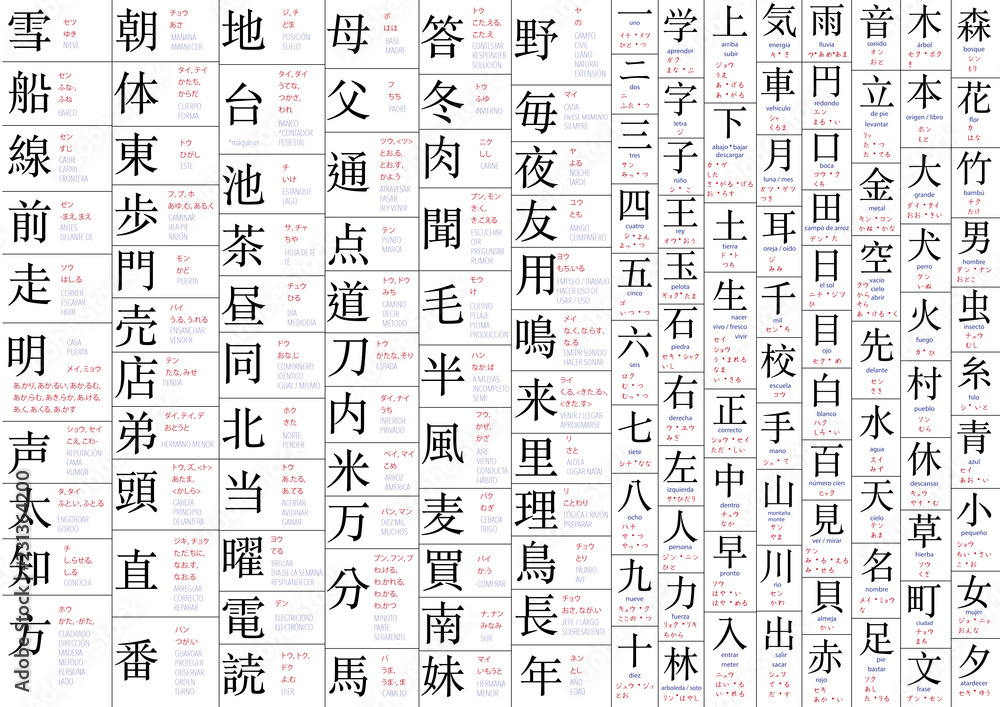 雪
セツ
ゆき
NIEVE
船
セン
ふな,
ふね
BARCO
線
セン
すじ
CABLE
FRONTERA
前
セン
-まえ, まえ
ANTES
DELANTE DE
走
ソウ
はしる
CORRER
ESCAPAR
HUIR
明
CASA
PUERTA
メイ, ミョウ
声
ショウ, セイ
こえ, こわ-
REPUTACIÓN
FAMA
RUMOR
タ, タイ
ふとい, ふとる
ENGORDAR
GORDO
知
チ
しらせる,
しる
CONOCER
方
ホウ
かた, -がた,
CUADRADO
DIRECCIÓN
MADERA
MÉTODO
PERSONA
LADO
朝
チョウ
あさ
MAÑANA
AMANECER
体
タイ, テイ
かたち,
からだ
CUERPO
FORMA
東
トウ
ひがし
ESTE
歩
フ, ブ, ホ
あゆ.む, ある,く
CAMINAR
IR A PIE
RAZÓN
門
モン
かど
PUERTA
売
バイ
うる, うれる
ENSANCHAR
VENDER
店
テン
たな, みせ
TIENDA
弟
ダイ, テイ, デ
おとうと
HERMANO MENOR
頭
トウ, ズ, <ト>
あたま,
<かしら>
CABEZA
PRINCIPIO
DELANTERA
直
ジキ, チョク
ただ.ちに,
なお.す,
なお.る
ARREGLAR
CORRECTO
REPARAR
番
バン
つが.い
GUARDAR
PROTEGER
OBSERVAR
ORDEN
TURNO
地
ジ, チ
どま
POSICIÓN
SUELO
台
タイ, ダイ
うてな,
つかさ,
われ
BANCO
*CONTADOR
PEDESTAL
*máquinas
池
チ
いけ
ESTANQUE
LAGO
茶
サ, チャ
ちや
HOJA DE TÉ
TÉ
昼
チュウ
ひる
DÍA
MEDIODÍA
同
ドウ
おな.じ
COMPAÑERO
IDÉNTICO
IGUAL / MISMO
北
ホク
きた
NORTE
PERDER
当
トウ
あ.たる,
あ.てる
ACERTAR
ADIVINAR
GANAR
曜
ヨウ
てる
BRILLAR
DÍA DE LA SEMANA
RESPLANDECER
電
デン
ELECTRICIDAD
ELECTRÓNICO
読
トウ, トク,
ドク
よ.む
LEER
母
ボ
はは
BASE
MADRE
父
フ
ちち
PADRE
通
ツウ, <ツ>
とお.る,
とお.す,
かよう
ATRAVESAR
PASAR
IR Y VENIR
点
テン
PUNTO
MARCA
道
トウ, ドウ
みち
CAMINO
DECIR
MÉTODO
刀
トウ
かたな, そり
ESPADA
内
ダイ, ナイ
うち
INTERIOR
PRIVADO
米
ベイ, マイ
こめ
ARROZ
AMERICA
万
バン, マン
DIEZ MIL
MUCHOS
分
ブン, フン, ブ
わ.ける,
わ.かれる,
わ.かる,
わ.かつ
MINUTO
PARTE
SEGMENTO
馬
バ
うま,
うま-, ま
CABALLO
答
トウ
こた.える,
こた.え
CONTESTAR
RESPONDER
SOLUCIÓN
冬
トウ
ふゆ
INVIERNO
肉
ニク
しし
CARNE
聞
ブン, モン
き.く,
き.こえる
ESCUCHAR
OIR
PREGUNTAR
RUMOR
毛
モウ
け
CULTIVO
PELAJE
PLUMA
PRODUCCIÓN
半
ハン
なか.ば
A MEDIAS
INCOMPLETO
SEMI
風
フウ,
かぜ,
かざ
AIRE
VIENTO
CONDUCTA
HÁBITO
麦
バク
むぎ
CEBADA
TRIGO
買
バイ
か.う
COMPRAR
南
ナ, ナン
みなみ
SUR
妹
マイ
いもうと
HERMANA
MENOR
野
ヤ
の
CAMPO
CIVIL
LLANO
NATURAL
EXTENSIÓN
毎
マイ
CADA
EN ESE MOMENTO
SIEMPRE
夜
ヤ
よる
NOCHE
TARDE
友
ユウ
とも
AMIGO
COMPAÑERO
用
ヨウ
もち.いる
EMPLEO / TRABAJO
HACER USO DE
USAR / USO
鳴
メイ
な.く, な.らす,
な.る
EMITIR SONIDO
HACER SONAR
来
ライ
く.る, <きた.る>,
<きた.す>
VENIR / LLEGAR
APROXIMARSE
里
リ
さと
ALDEA
LUGAR NATAL
理
リ
ことわり
LÓGICA / RAZÓN
PREPARAR
鳥
チョウ
とり
PÁJARO
AVE
長
チョウ
おさ, なが.い
JEFE / LARGO
SOBRESALIENTE
年
ネン
とし
AÑO
EDAD
一
uno
イチ・イツ
ひと・つ
二
dos
ニ
ふた・つ
三
tres
サン
みっ・つ
四
cuatro
シ・よん
よっ・つ
五
cinco
ゴ
いつ・つ
六
seis
ロク
む・つ
七
siete
シチ・なな
八
ocho
ハチ
や・つ
やっ・つ
九
nueve
キュウ・ク
ここの・つ
十
diez
ジュウ・ジッ
とお
学
aprender
ガク
まな・ぶ
字
letra
ジ
子
niño
シ・こ
王
rey
オウ・おう
玉
pelota
ギョク・たま
石
piedra
セキ・シャク
いし
右
derecha
ウ・ユウ
みぎ
左
izquierda
サ・ひだり
人
persona
ジン・ニン
ひと
力
fuerza
リョク・リキ
ちから
林
arboleda / soto
リン・はやし
上
arriba
subir
ジョウ
うえ
あ・げる
あ・がる
下
abajo・bajar
descargar
カ・ゲ
した
さ・がる・げる
お・ろす
土
tierra
ド・ト
つち
生
nacer
vivo / fresco
vivir
セイ
ショウ
う・まれる
なま
い・きる
正
correcto
ショウ・セイ
ただ・しい
中
dentro
チュウ
なか
早
pronto
ソウ
はや・い
はや・める
入
entrar
meter
ニュウ
はい・る
い・れる
気
energía
キ・き
車
vehículo
シャ
くるま
月
luna / mes
ガツ・ゲツ
つき
耳
oreja / oído
ジ
みみ
千
mil
セン・ち
校
escuela
コウ
手
mano
シュ・て
山
montaña
monte
サン
やま
川
rio
セン
かわ
出
salir
sacar
シュツ
で・る
だ・す
雨
lluvia
う・あめ・あま
円
redondo
エン
まる・い
口
boca
コウ・ク
くち
田
campo de arroz
デン・た
日
el sol
ニチ・ジツ
ひ
目
ojo
モク・め
白
blanco
ハク
しろ・い
百
número cien
ヒャク
見
ver / mirar
ケン
み・る・える
み・せる
貝
almeja
かい
赤
rojo
セキ
あか・い
音
sonido
オン
おと
立
de pie
levantar
リッ
た・つ
た・てる
金
metal
キン・コン
かね・かな
空
vacío
cielo
abrir
クウ
から
そら
あ・ける・く
先
delante
セン
さき
水
agua
スイ
みず
天
cielo
テン
あま
名
nombre
メイ・ミョウ
な
足
pie
bastar
ソク
あし
た・りる
木
árbol
モク・ボク
き
本
origen / libro
ホン
もと
大
grande
ダイ・タイ
おお・きい
犬
perro
ケン
いぬ
火
fuego
カ・ひ
村
pueblo
ソン
むら
休
descansar
キュウ
やす・む
草
hierba
ソウ
くさ
町
ciudad
チョウ
まち
文
frase
ブン・モン
森
bosque
シン
もり
花
flor
カ
はな
竹
bambú
チク
たけ
男
hombre
ダン・ナン
おとこ
虫
insecto
チュウ
むし
糸
hilo
シ・いと
青
azul
セイ
あお・い
小
pequeño
ショウ
ちい・さい
こ・お
女
mujer
ジョ・ニョ
おんな
夕
atardecer
セキ・ゆう
Adobe Stock | #231364200